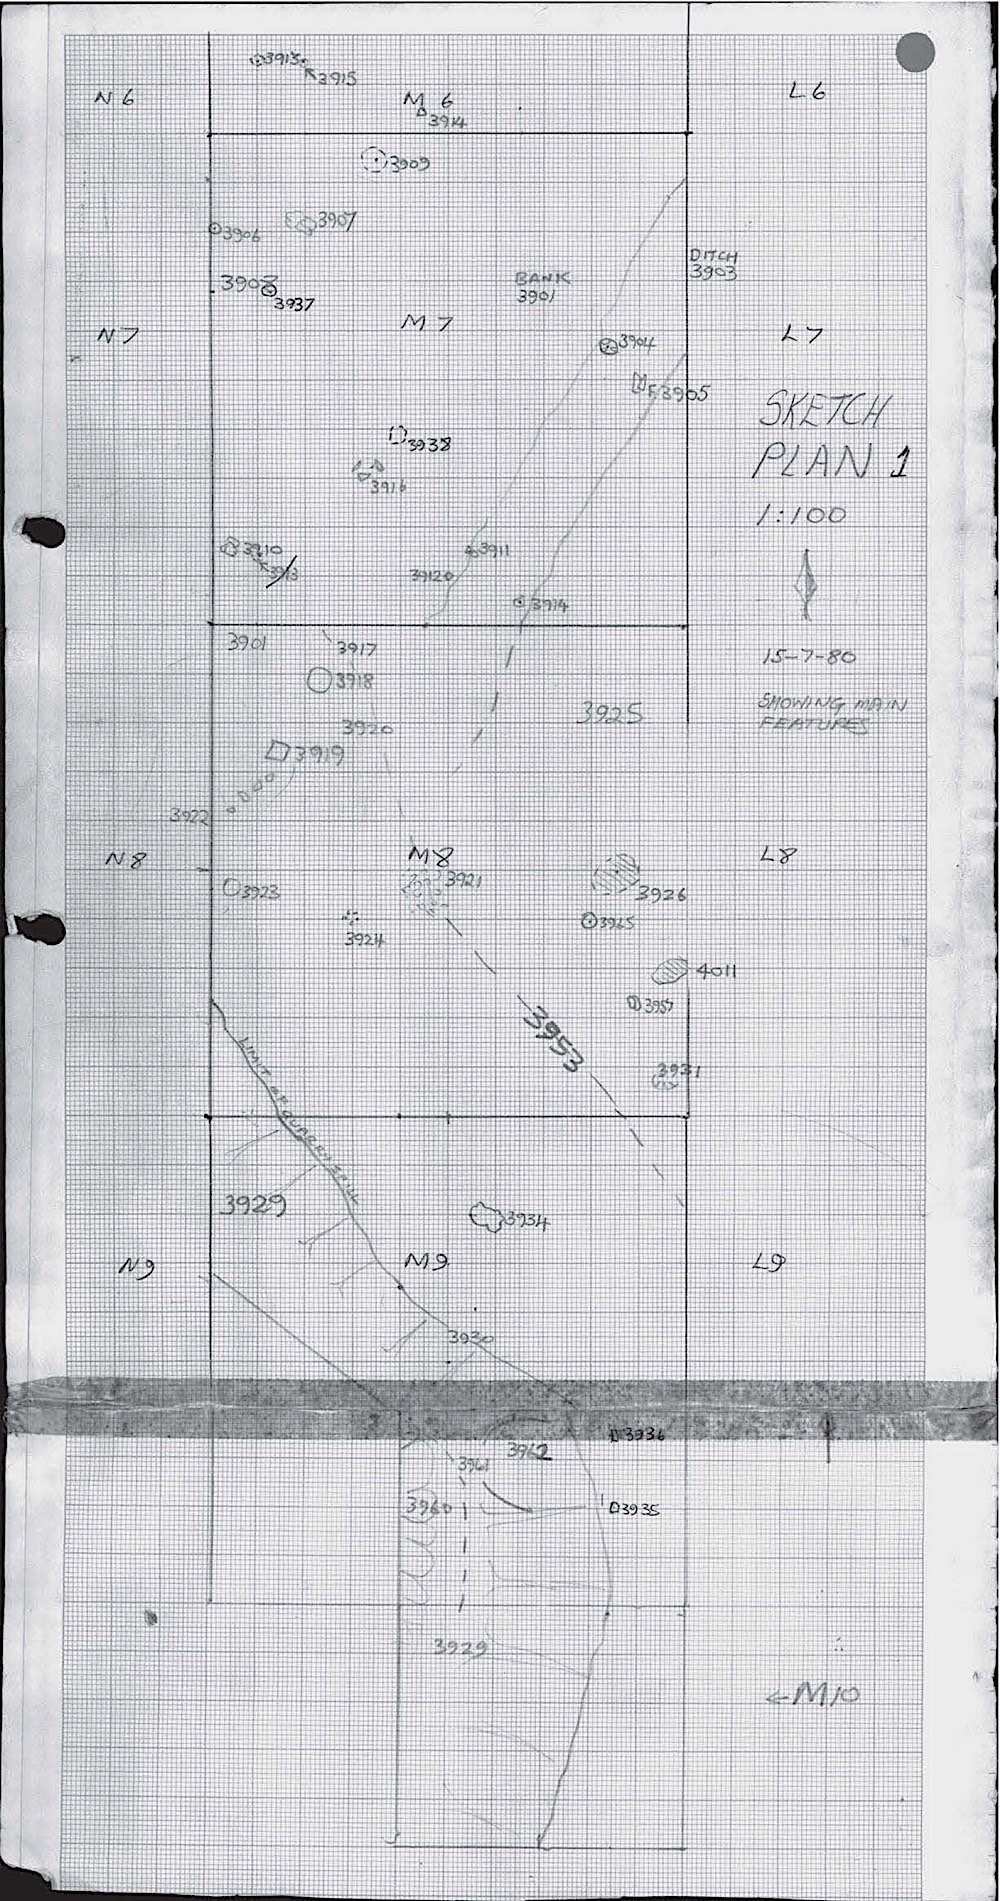 3913
3915
N6
M6
L6
3914
3909
3907
3906
DITCH
3903
BANK
3901
3908
3937
M7
N7
L7
3904
F3905
SKETCH
PLAN 1
3938
3916
1:100
3910
3911
3913
39120
3914
3901
3917
15-7-80
3918
SHOWING MAIN
FEATURES
3925
3920
3919
3922
M8
N8
L8
3921
3926
3923
3965
3924
4011
3957
3953
3931
LIMIT OF QUARRY SPOIL
3929
3934
N9
M9
L9
3930
3936
3962
3961
3960
3935
3929
←M10